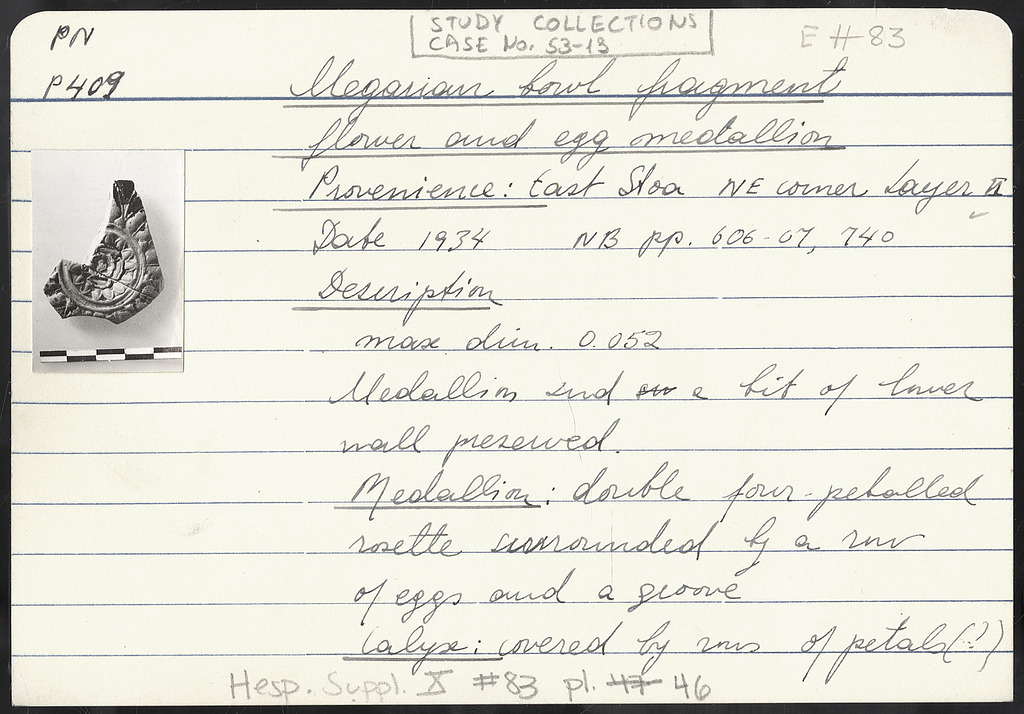 PN
STUDY COLLECTIONS
CASE No. 53-13
E # 83
P409
Megarian bowl fragment
flower and egg medallion
Provenience: East Stoa NE corner Layer II
Date 1934 NB pp. 606-07, 740
Description
max dim. 0.052
Medallion and a bit of lower
wall preserved.
Medallion: double four-petalled
rosette surrounded by a row
of eggs and a groove
Calyx: covered by rows of petals(?)
Hesp. Suppl. X #83 pl. 47 46